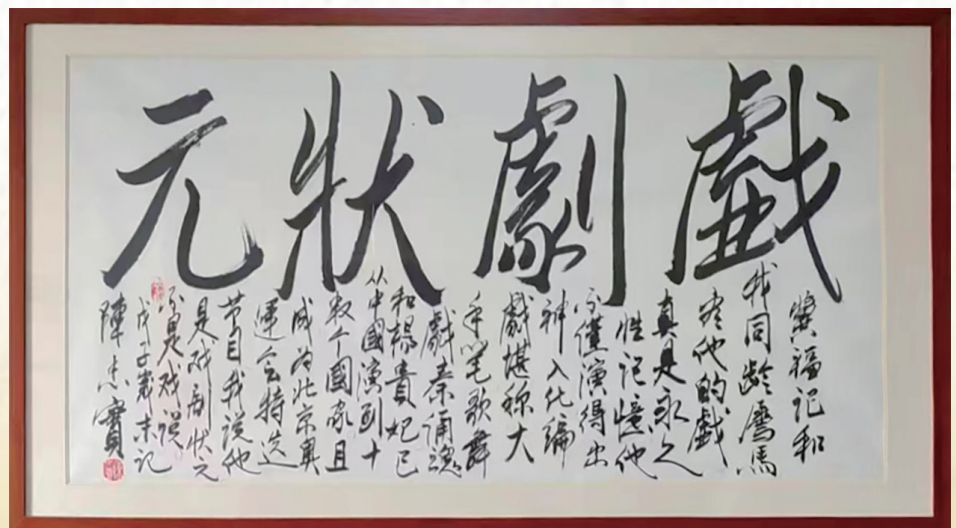 戲劇狀元
冀福记和
我同龄属马
看他的戲
真是永久
性记憶他
不僅演得出
神入化编
戲堪称大
手笔歌舞
戲秦俑魂
和楊貴妃已
从中國演到十
数个國家且
成为北京奥
運会特选
节目我说他
是戏剧状元
不是戏说
戊子歲末记
陳忠實